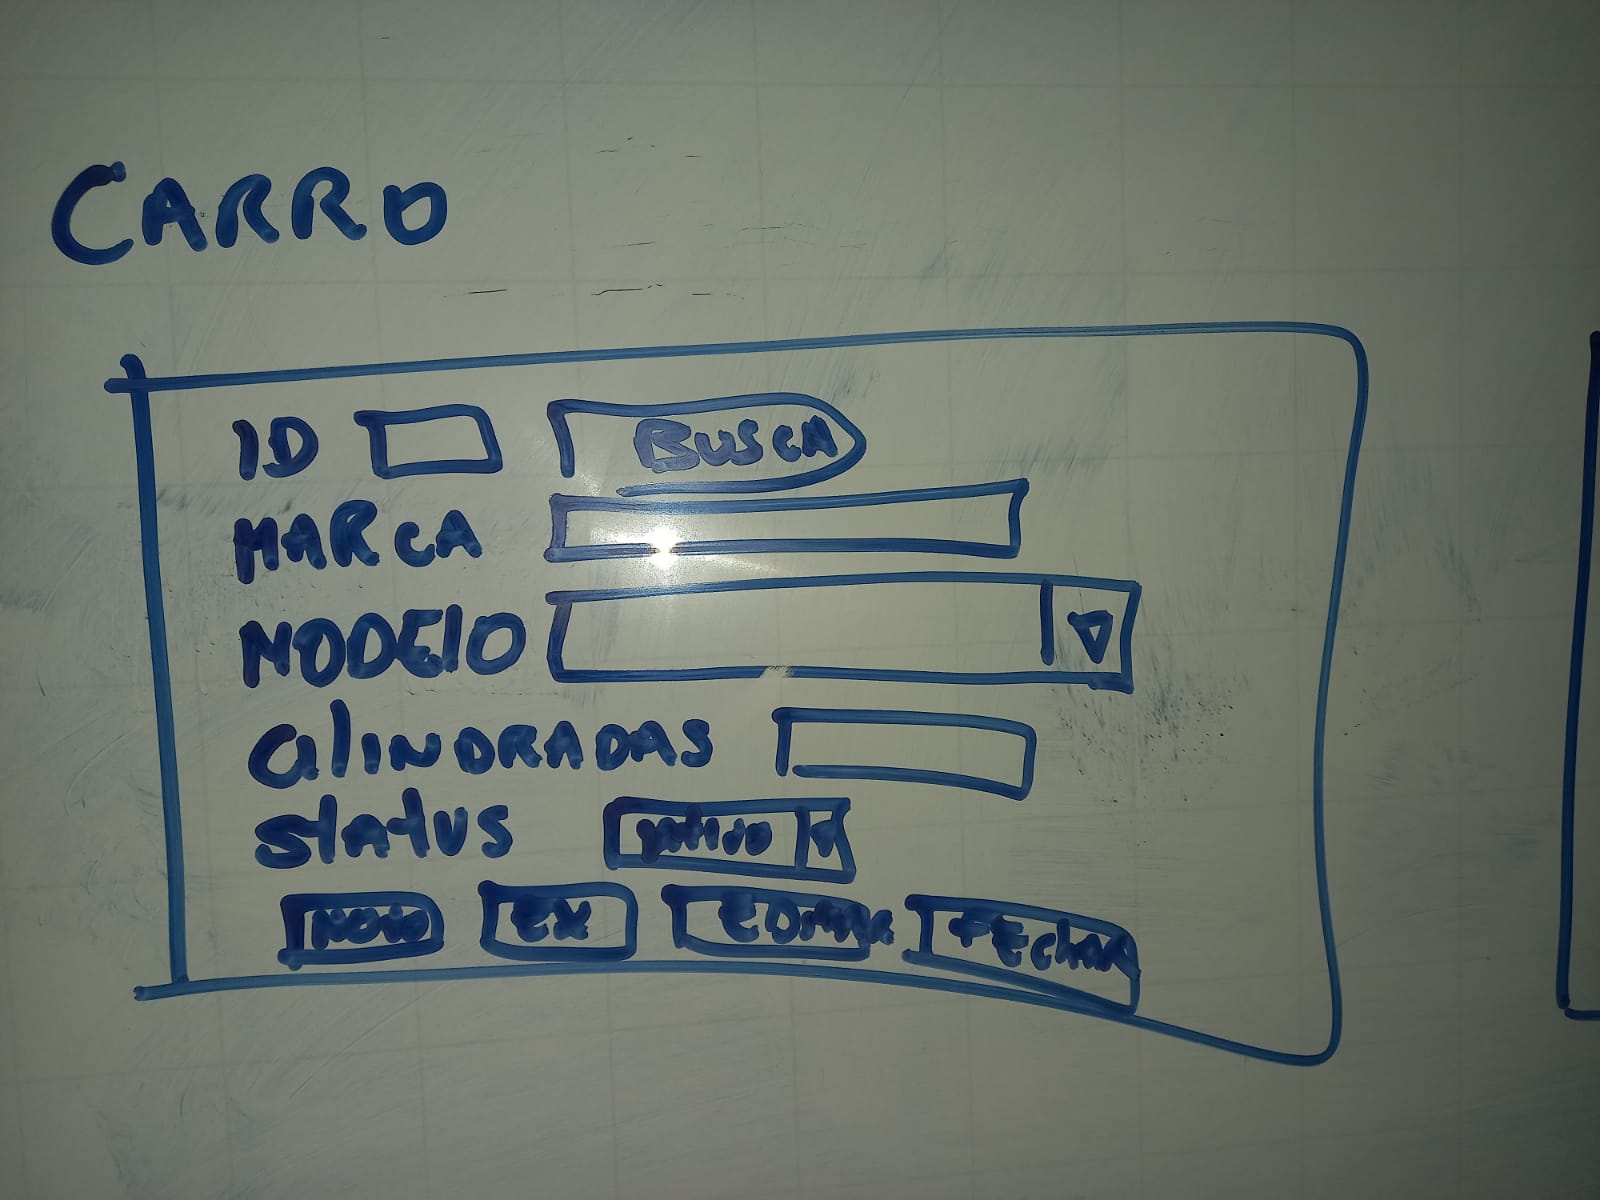 CARRO
ID BUSCA
MARCA
MODElO
CilINDRADAS
StAtUS
NOVO EX EDITAR FECHAR